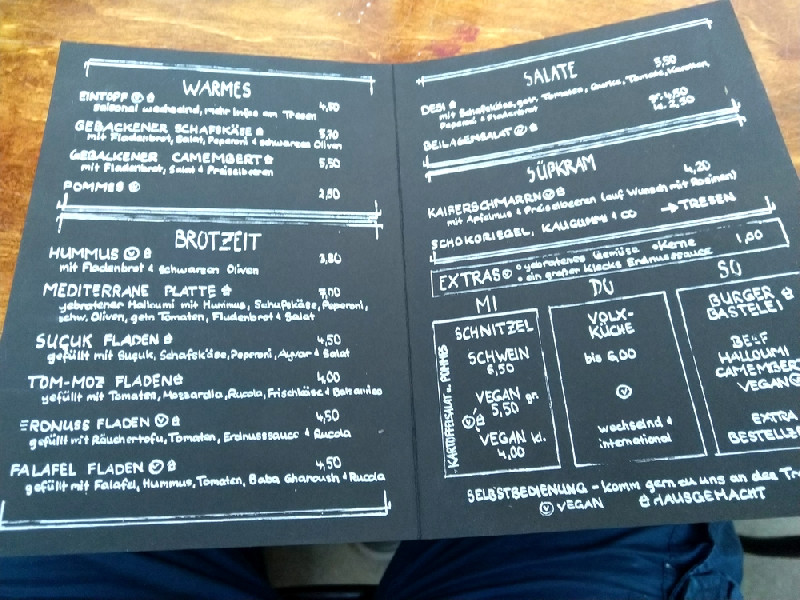 WARMES
EINTOPF Ⓥ 4,80
saisonal wechselnd, mehr Infos am Tresen
GEBACKENER SCHAFSKÄSE 5,70
mit Fladenbrot, Salat, Peperoni & schwarzen Oliven
GEBACKENER CAMEMBERT 5,50
mit Fladenbrot, Salat & Preiselbeeren
POMMES Ⓥ 2,50
BROTZEIT
HUMMUS Ⓥ 3,80
mit Fladenbrot & schwarzen Oliven
MEDITERRANE PLATTE
gebratener Halloumi mit Hummus, Schafskäse, Peperoni,
schw. Oliven, getr. Tomaten, Fladenbrot & Salat
SUÇUK FLADEN 4,50
gefüllt mit Suçuk, Schafskäse, Peperoni, Ayvar & Salat
TOM-MOZ FLADEN 4,00
gefüllt mit Tomaten, Mozzarella, Rucola, Frischkäse & Balsamico
ERDNUSS FLADEN Ⓥ 4,50
gefüllt mit Räuchertofu, Tomaten, Erdnusssauce & Rucola
FALAFEL FLADEN Ⓥ 4,50
gefüllt mit Falafel, Hummus, Tomaten, Baba Ghanoush & Rucola
SALATE
DESI 5,50
mit Schafskäse, getr. Tomaten, Gurke, Tomate, Karotten,
Peperoni & Fladenbrot
BEILAGENSALAT Ⓥ gr. 4,50
kl. 2,50
SÜPKRAM
KAISERSCHMARRN Ⓥ 4,20
mit Apfelmus & Preiselbeeren (auf Wunsch mit Rosinen)
SCHOKORIEGEL, KAUGUMMI & CO → TRESEN
EXTRAS Ⓥ • gebratenes Gemüse • Kerne 1,00
• ein großer Klecks Erdnusssauce
MI
KARTOFFELSALAT o. POMMES
SCHNITZEL
SCHWEIN
6,50
VEGAN gr.
5,50
Ⓥ
VEGAN kl.
4,00
DO
VOLX-
KÜCHE
bis 6,00
Ⓥ
wechselnd &
international
SO
BURGER
BASTELEI
BEEF
HALLOUMI
CAMEMBERT
VEGAN Ⓥ
EXTRA
SELBSTBEDIENUNG - komm gern zu uns an den
Ⓥ VEGAN HAUSGEMACHT